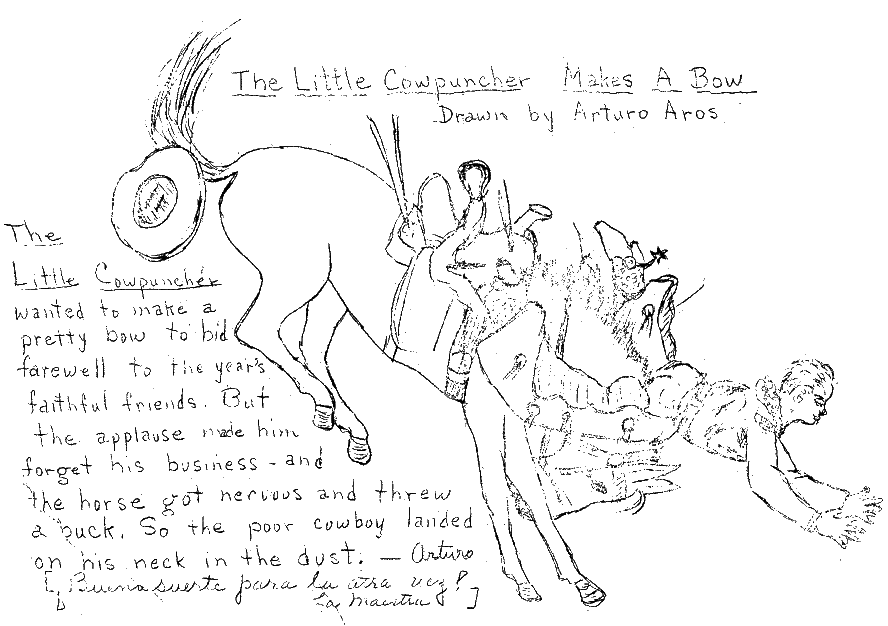 The Little Cowpuncher Makes A Bow
Drawn by Arturo Aros
The
Little Cowpuncher
wanted to make a
pretty bow to bid
farewell to the year's
faithful friends. But
the applause made him
forget his business - and
the horse got nervous and threw
a buck. So the poor cowboy landed
on his neck in the dust. — Arturo
[¡Buena suerte para la otra vez!
La maestra]